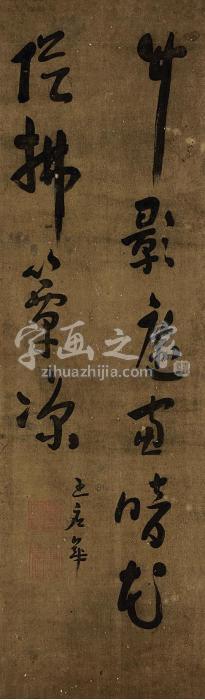 竹影遮窗暗花
陰拂簟凉
王 華
字画之家
zihuazhijia.com